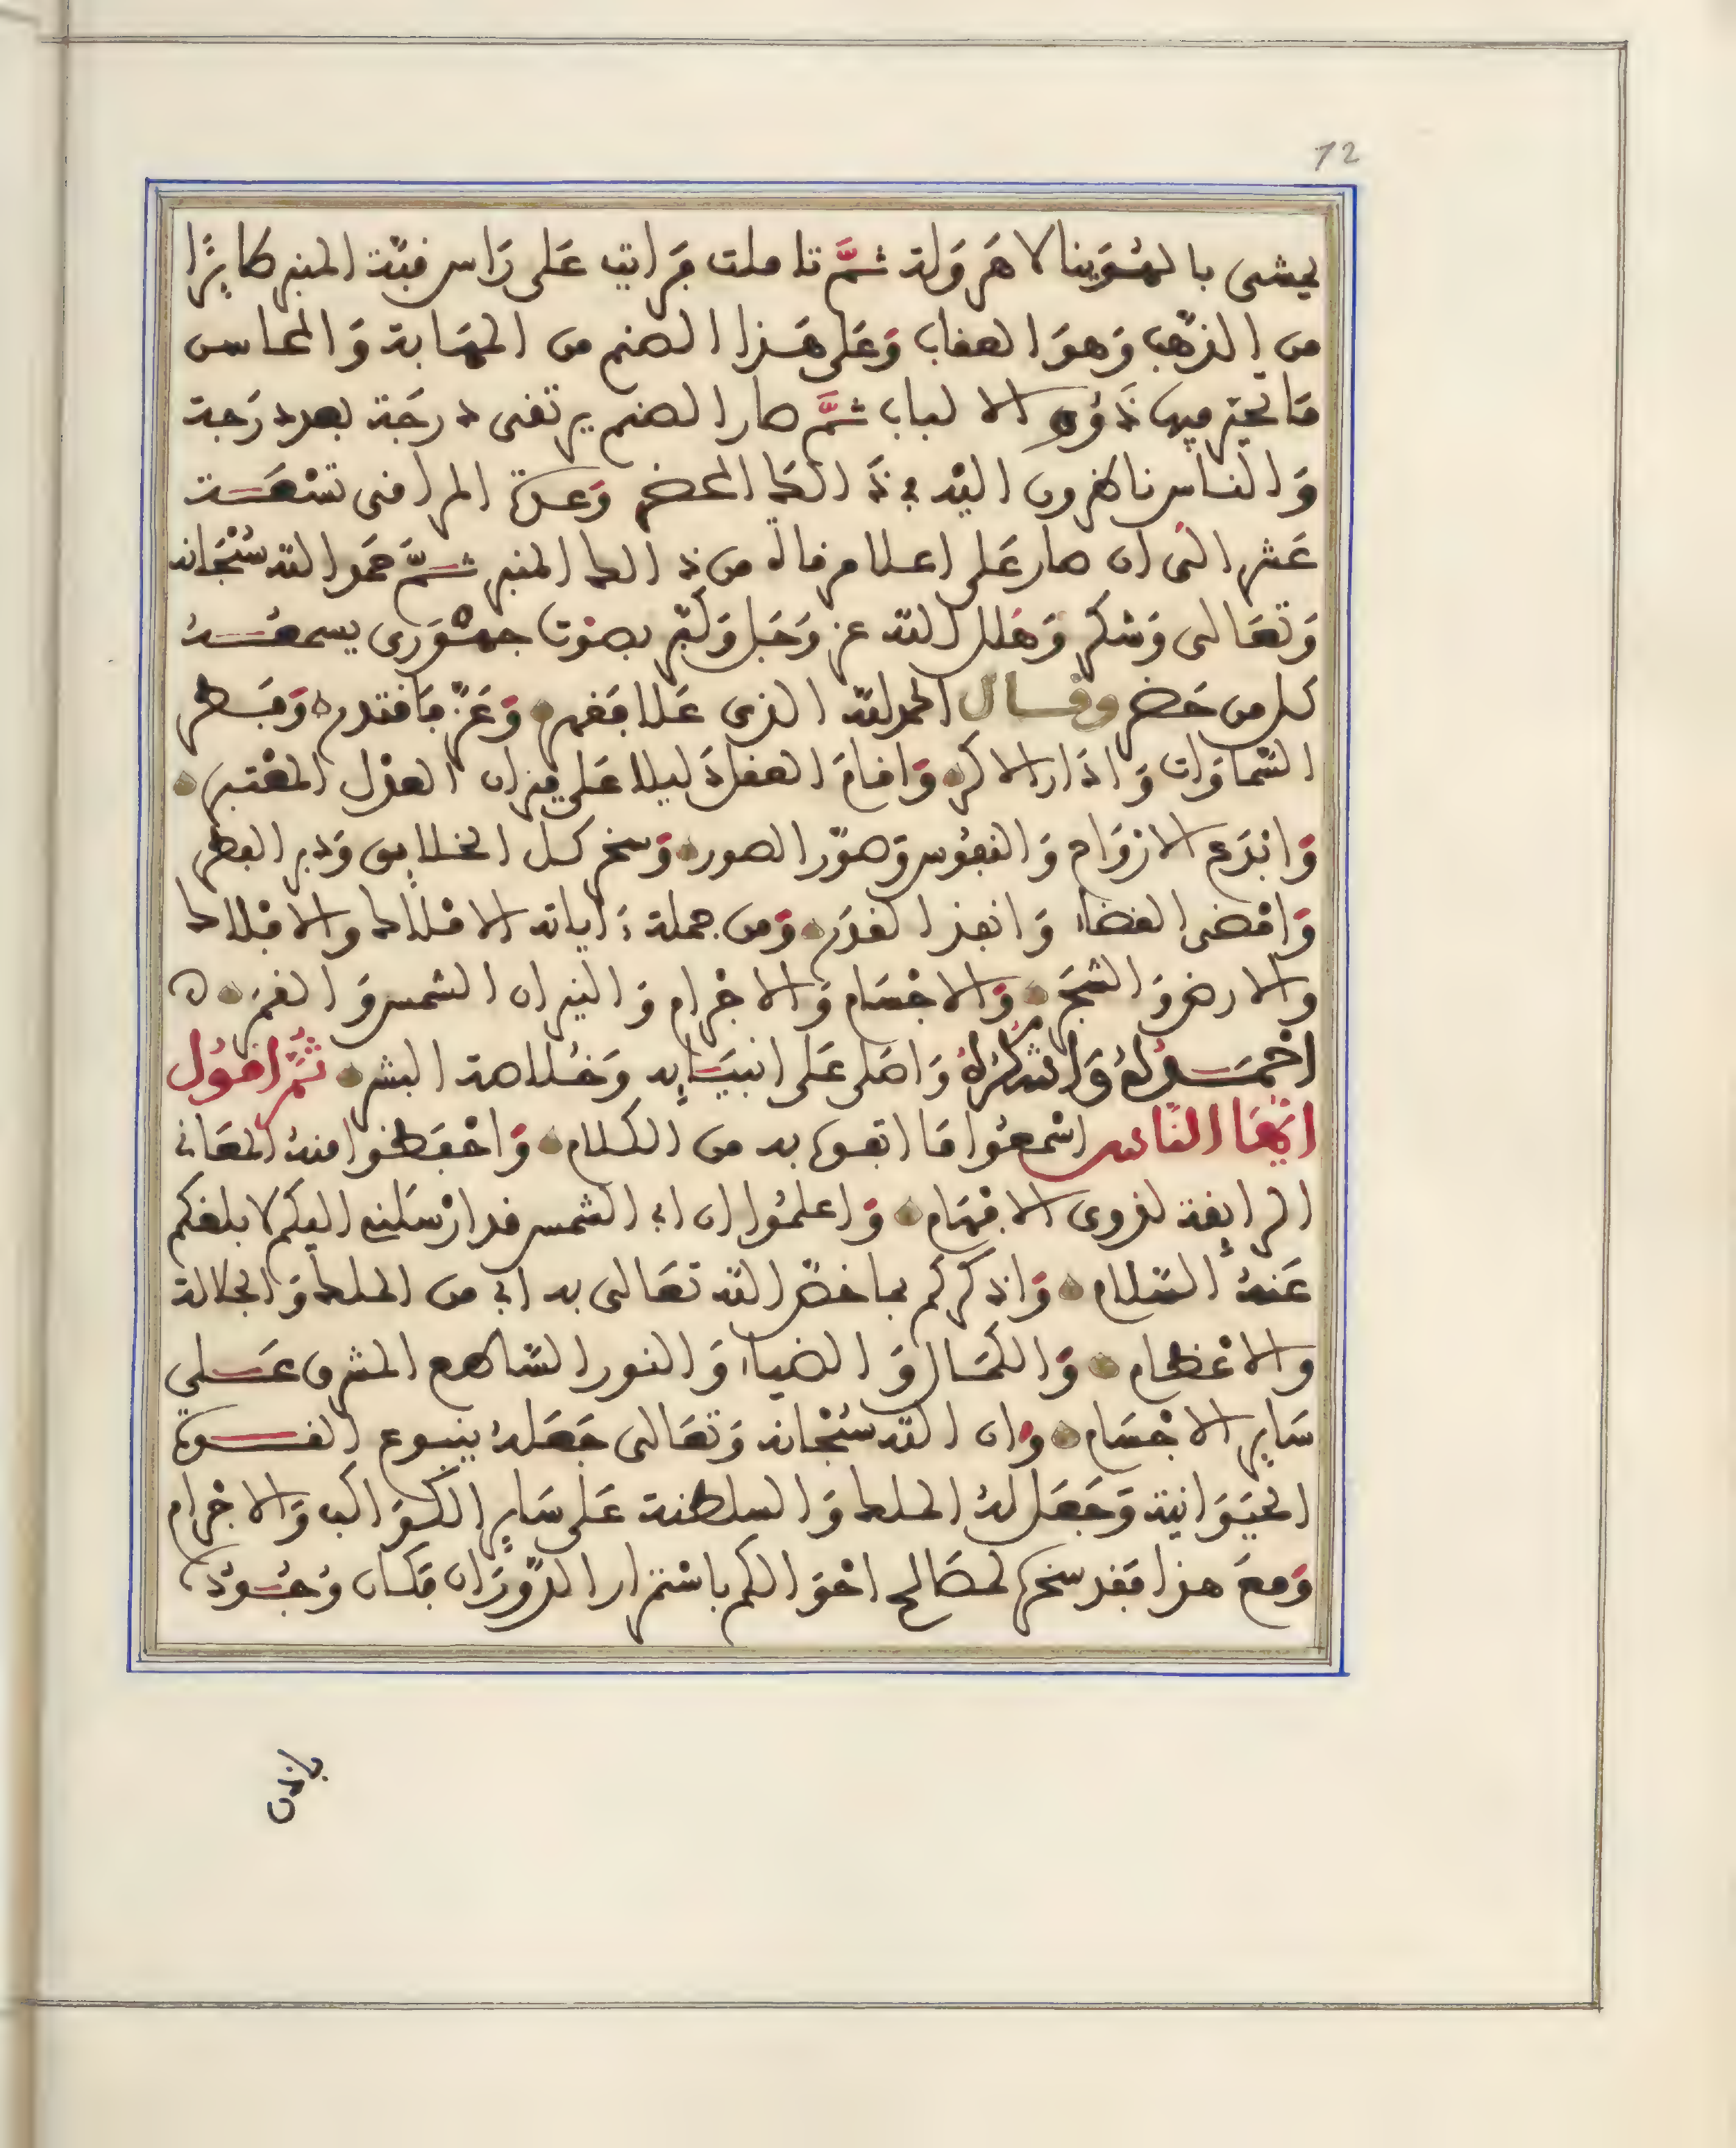 12
يمشى بالهُوَينا لا هَروَلة ثمَّ تاملت فرايت عَلى رَاس قبّة المنبر طايرًا
من الذهب وَهوَ العقاب وَعَلى هَذا الصنم من المهَابة وَالمحاسن
مَا تحير فيها ذَوُو الالباب ثمَّ صار الصنم يرتقى درجَة بعد درَجة
وَالناس ناظرون اليْه فى ذَالكَ المحضر وَعدة المراقى تسْعَة
عَشر الى ان صار عَلى اعلا مرقاة من ذالك المنبر ثمَّ حمَد الله سُبْحَانه
وَتعَالى وَشكر وَهَلل الله عز وَجَل وَكبّر بصوْت جهْوَرى يسمعُهُ
كل من حَضر وقال الحمد لله الذى عَلا فقهر وَعَزّ فاقتدر وَفَطر
السّماوَات وَادَار الاكر وَاقامَ العقل دَليلا عَلى ميزان العدْل المعْتبر
وَابْدَع الارْوَاح وَالنفوُس وَصوّر الصور وَسخر كل الخلايق وَدبر الفطر
وَامْضى القضاء وَانفذ القدَر وَمن جملة ءاياته الامْلاك والافْلاك
والارض وَالشجَر وَالاجْسَام وَالاجْرام وَالنيران الشمس وَالقمَر ه
احْمَدُهُ وَاشكرُهُ وَاصَلى عَلى انبيَايه وَخُلاصة البشر ثمَّ اقوُل
ايّهَا النَّاس اسْمعُوا مَا اتفوه به من الكلام وَاحْفَظوا منهُ المعَانى
الرايقة لذوى الافْهَام وَاعلمُوا ان ابى الشمس قد ارْسَلنى اليكم لابلغكم
عَنهُ السَّلام وَاذكركم بما خصّ الله تعَالى به ابى من الملك وَالجلالة
والاعْظام وَالكمَال وَالضياء وَالنور السَّاطع المشرق عَلى
سَاير الاجْسَام وان الله سُبْحَانه وَتعَالى جَعَلهُ ينبوع القوة
الحيَوَانية وَجَعَل لهُ الملك وَالسلطنة عَلى سَاير الكوَاكب وَالاجْرام
وَمعَ هذا فقد سخره لمصَالح احْوَالكم باسْتمرار الدّوَرَان فكان وُجُودُه
باذن